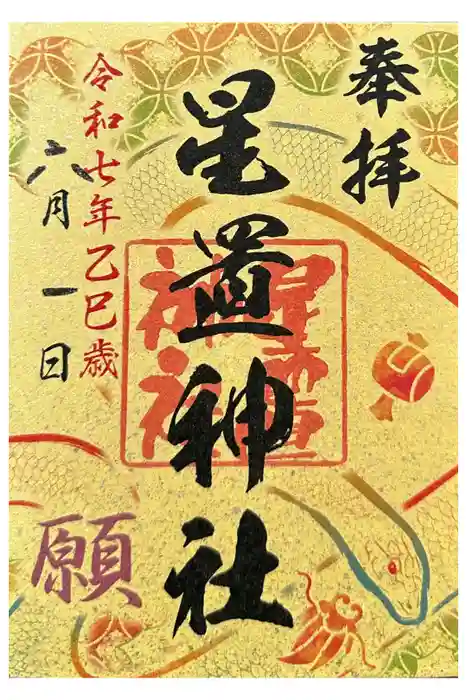 奉拝
星置神社
星置神社
令和七年乙巳歳
六月一日
願